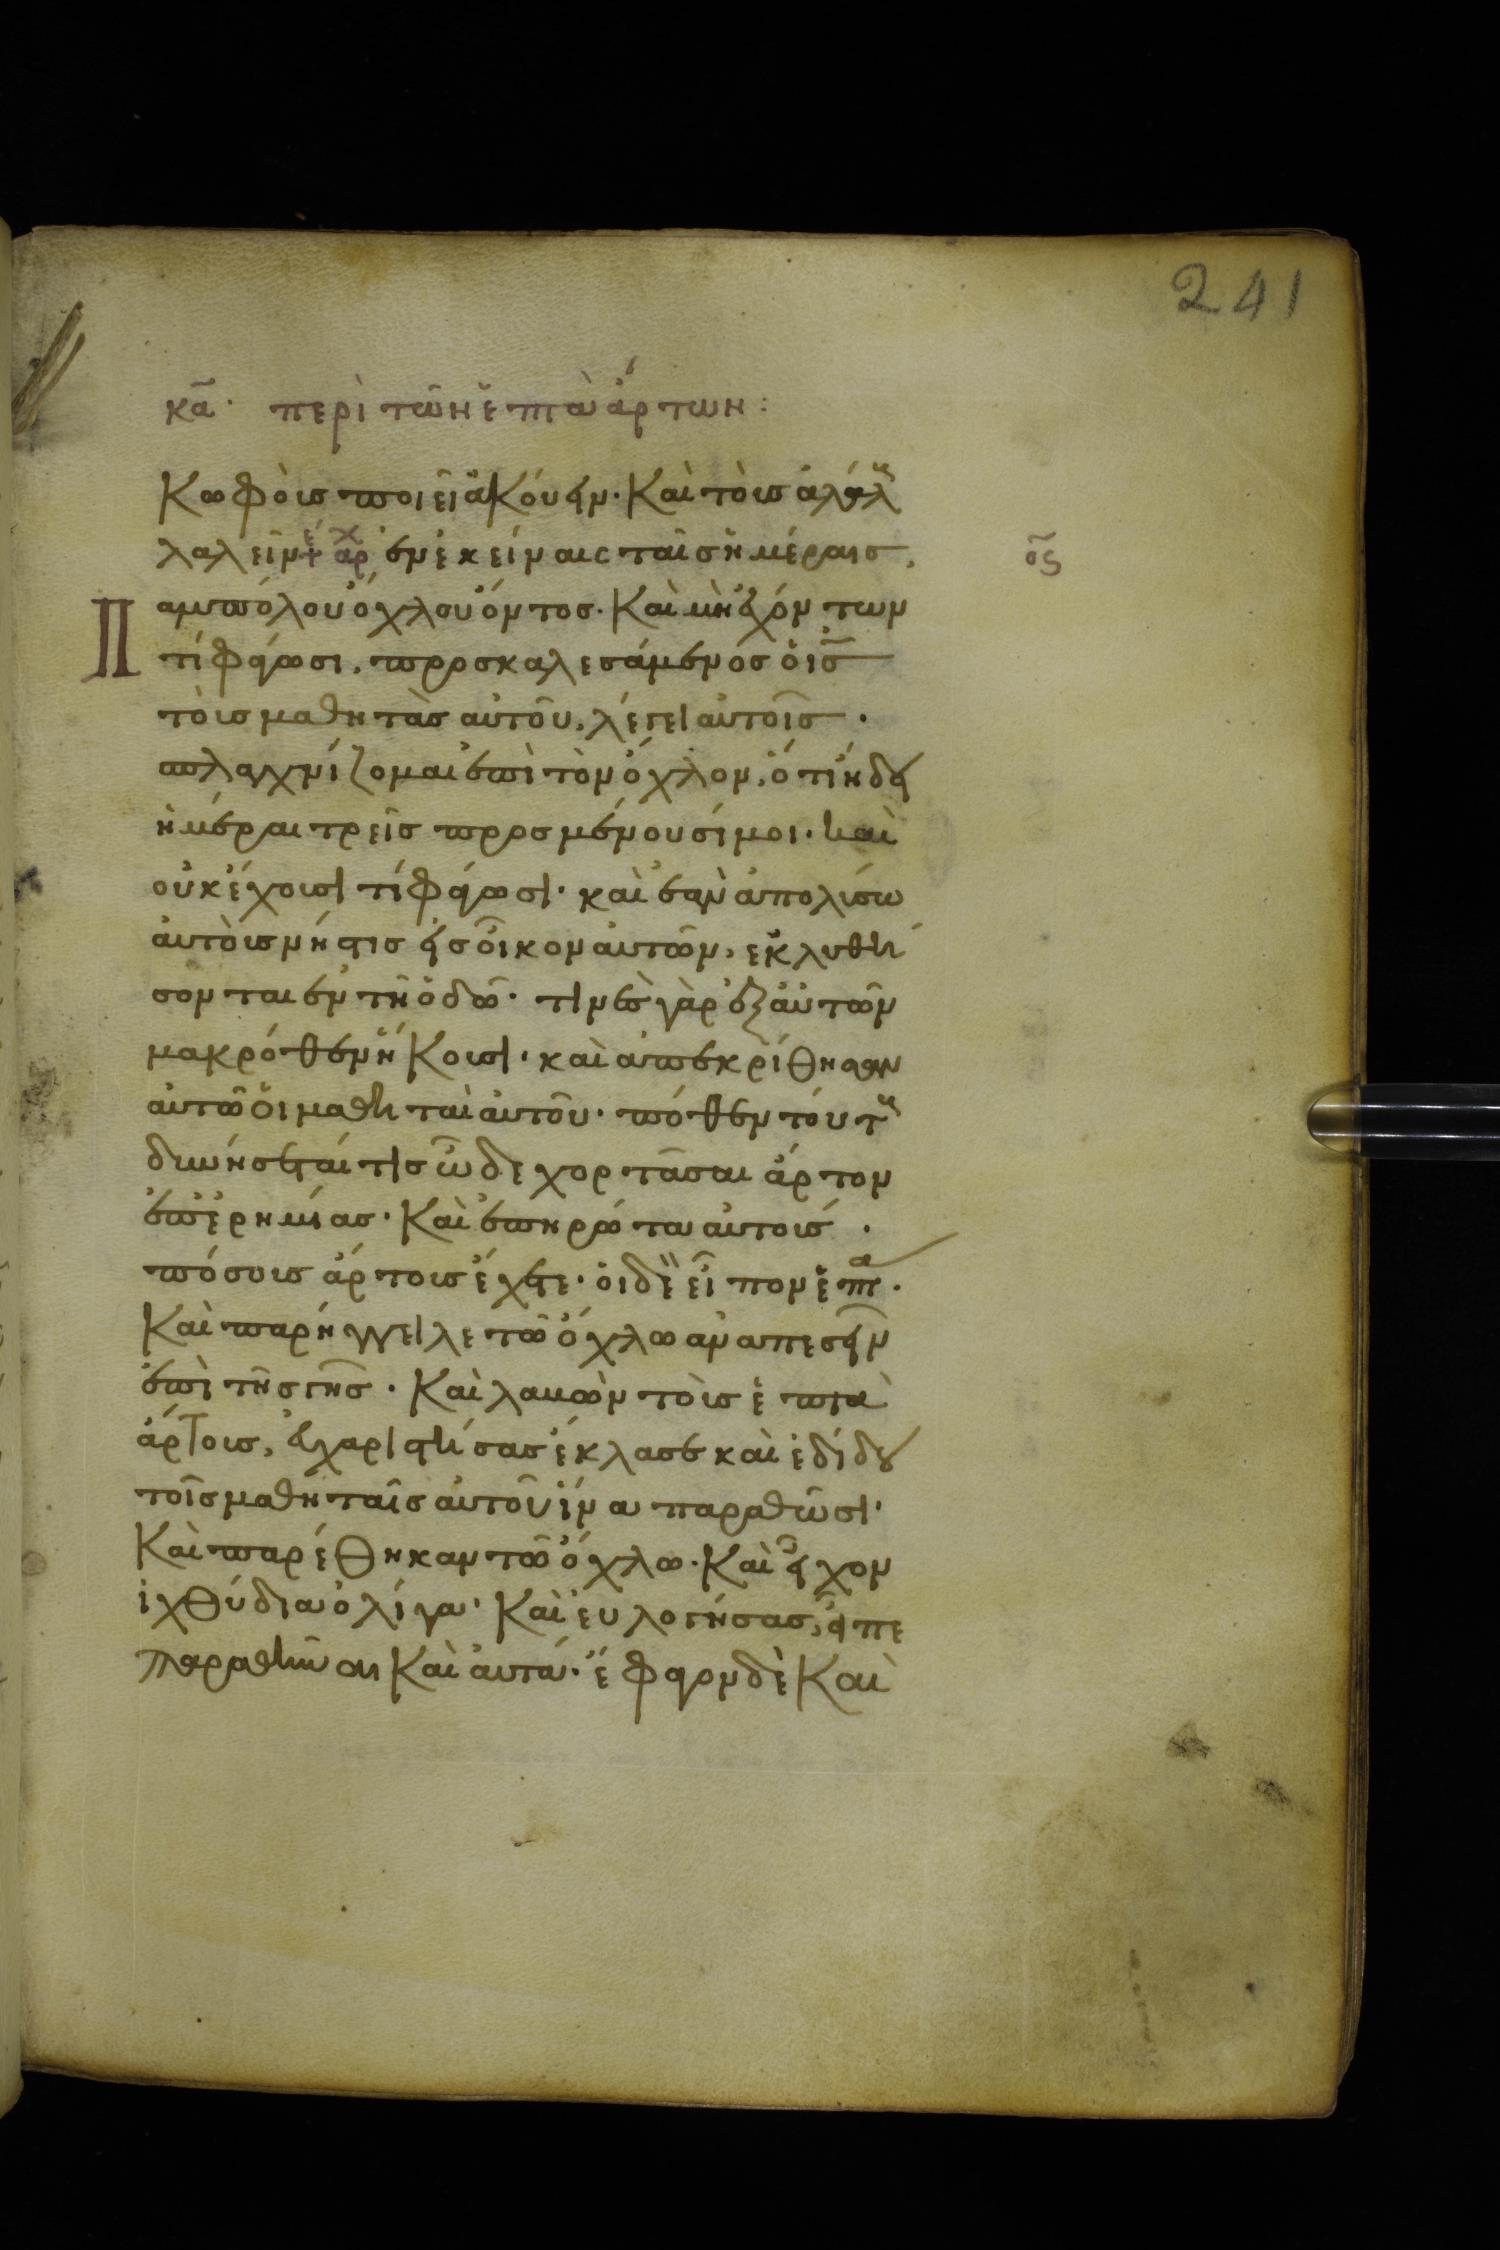 241
κα̃· περὶ τῶν ἑπτὰ ἄρτων:
Κωφοὺς ποιεῖ ἀκούειν· Καὶ τοὺς ἀλάλ
λαλεῖν ἀρ ἐν ἐκείναις ταῖς ἡμέραις,
ος
Π
αμπόλου ὄχλου ὄντος· Καὶ μὴ ἐχόντων
τί φάγωσι, προσκαλεσάμενος ὁ ις̅
τοὺς μαθητὰς αὐτοῦ, λέγει αὐτοῖς·
σπλαγχνίζομαι ἐπὶ τὸν ὄχλον, ὅτι ἤδει
ἡμέραι τρεῖς προσμένουσί μοι· καὶ
οὐκ ἔχουσι τί φάγωσι· καὶ ἐὰν ἀπολύσω
αὐτοὺς νήστις εἰς οἶκον αὐτῶν, ἐκλυθή
σονται ἐν τῇ ὁδῷ· τινὲς γὰρ ἐξ αὐτῶν
μακρόθεν ἥκουσι· καὶ ἀπεκρίθησαν
αὐτῷ οἱ μαθηταὶ αὐτοῦ· πόθεν τούτ
δυνήσεταί τις ὧδε χορτᾶσαι ἄρτον
ἐπ ἐρημίας· Καὶ ἐπηρώτα αὐτούς·
πόσους ἄρτους ἔχετε· οἱ δὲ εἶπον ἑπτα·
Καὶ παρήγγειλε τῷ ὄχλω ἀναπεσεῖν
ἐπὶ τῆς γῆς· Καὶ λαβὼν τοὺς ἑπτὰ
ἄρτους, εὐχαριστήσας ἔκλασε καὶ ἐδίδου
τοῖς μαθηταῖς αὐτοῦ ἵνα παραθῶσι·
Καὶ παρέθηκαν τῷ ὄχλω· Καὶ εἶχον
ἰχθύδια ὀλίγα· Καὶ εὐλογήσας, εἶπε
παραθῆναι Καὶ αὐτά· ἔφαγον δὲ Καὶ